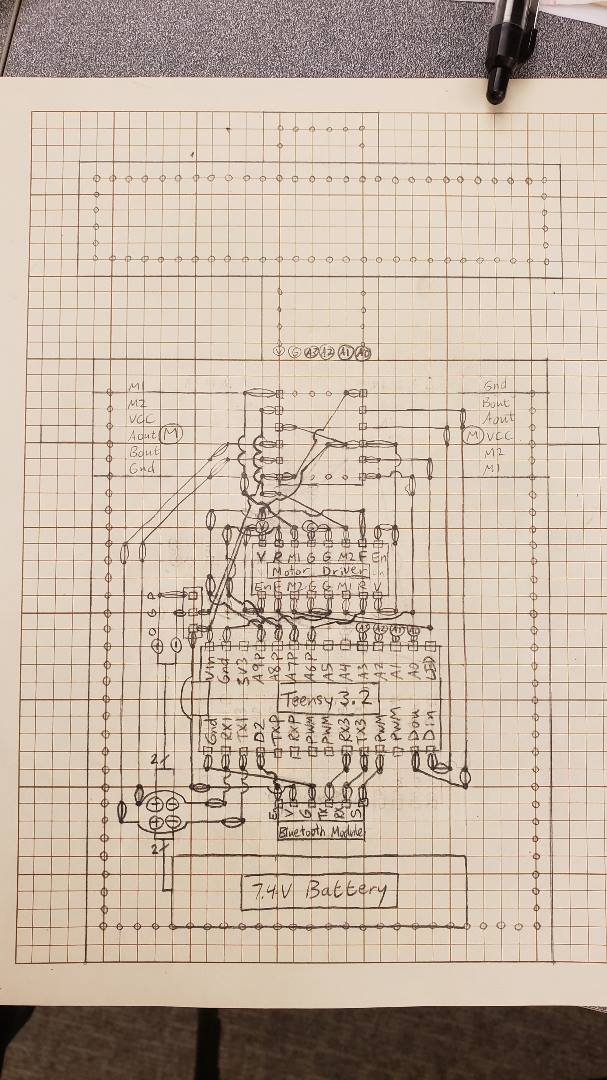 V G A3 A2 A1 A0
M1
M2
VCC
Aout M
Bout
Gnd
Gnd
Bout
Aout
M VCC
M2
M1
V G
V R M1 G G M2 F En
Motor Driver
En F M2 G G M1 R V
A3 A2 A1 A0
Vin Gnd 3V3 A9P A8P A7P A6P A5 A4 A3 A2 A1 A0 LED
Teensy 3.2
Gnd RX1 TX1 D2 TXP RXP PWM PWM RX3 TX3 PWM PWM Dou Din
2
En V G TX RX S
Bluetooth Module
2
7.4V Battery